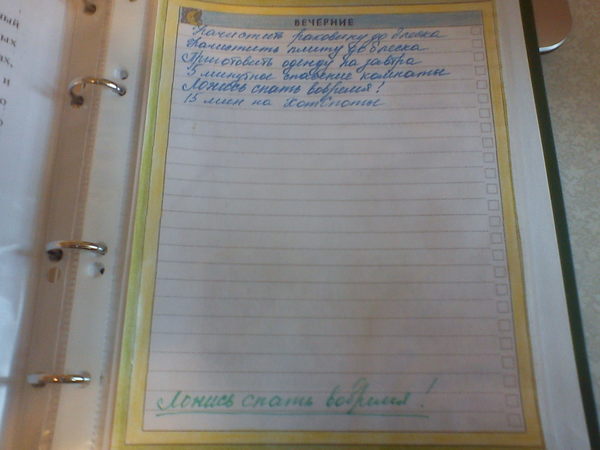 ный
ных
ых,
и
го
ВЕЧЕРНИЕ
Начистить раковину до блеска
Начистить плиту до блеска
Приготовить одежду на завтра
5 минутное спасение комнаты
Ложись спать вовремя!
15 мин на хотспоты
Ложись спать вовремя!